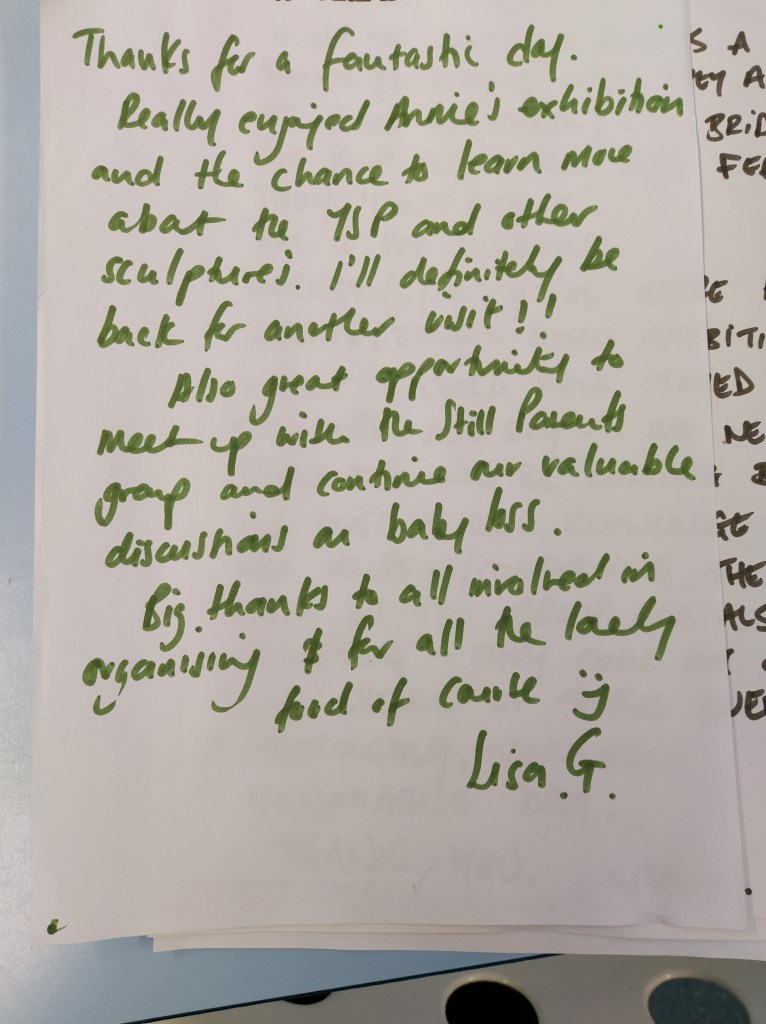 Thanks for a fantastic day.
Really enjoyed Annie's exhibition
and the chance to learn more
about the YSP and other
sculptures. I'll definitely be
back for another visit!!
Also great opportunity to
meet up with the Still Parents
group and continue our valuable
discussions on baby loss.
Big thanks to all involved in
organising & for all the lovely
food of course :)
Lisa.G.
S A
EY A
BRID
FEE
BITI
ED
NE
GE
THE
ALS